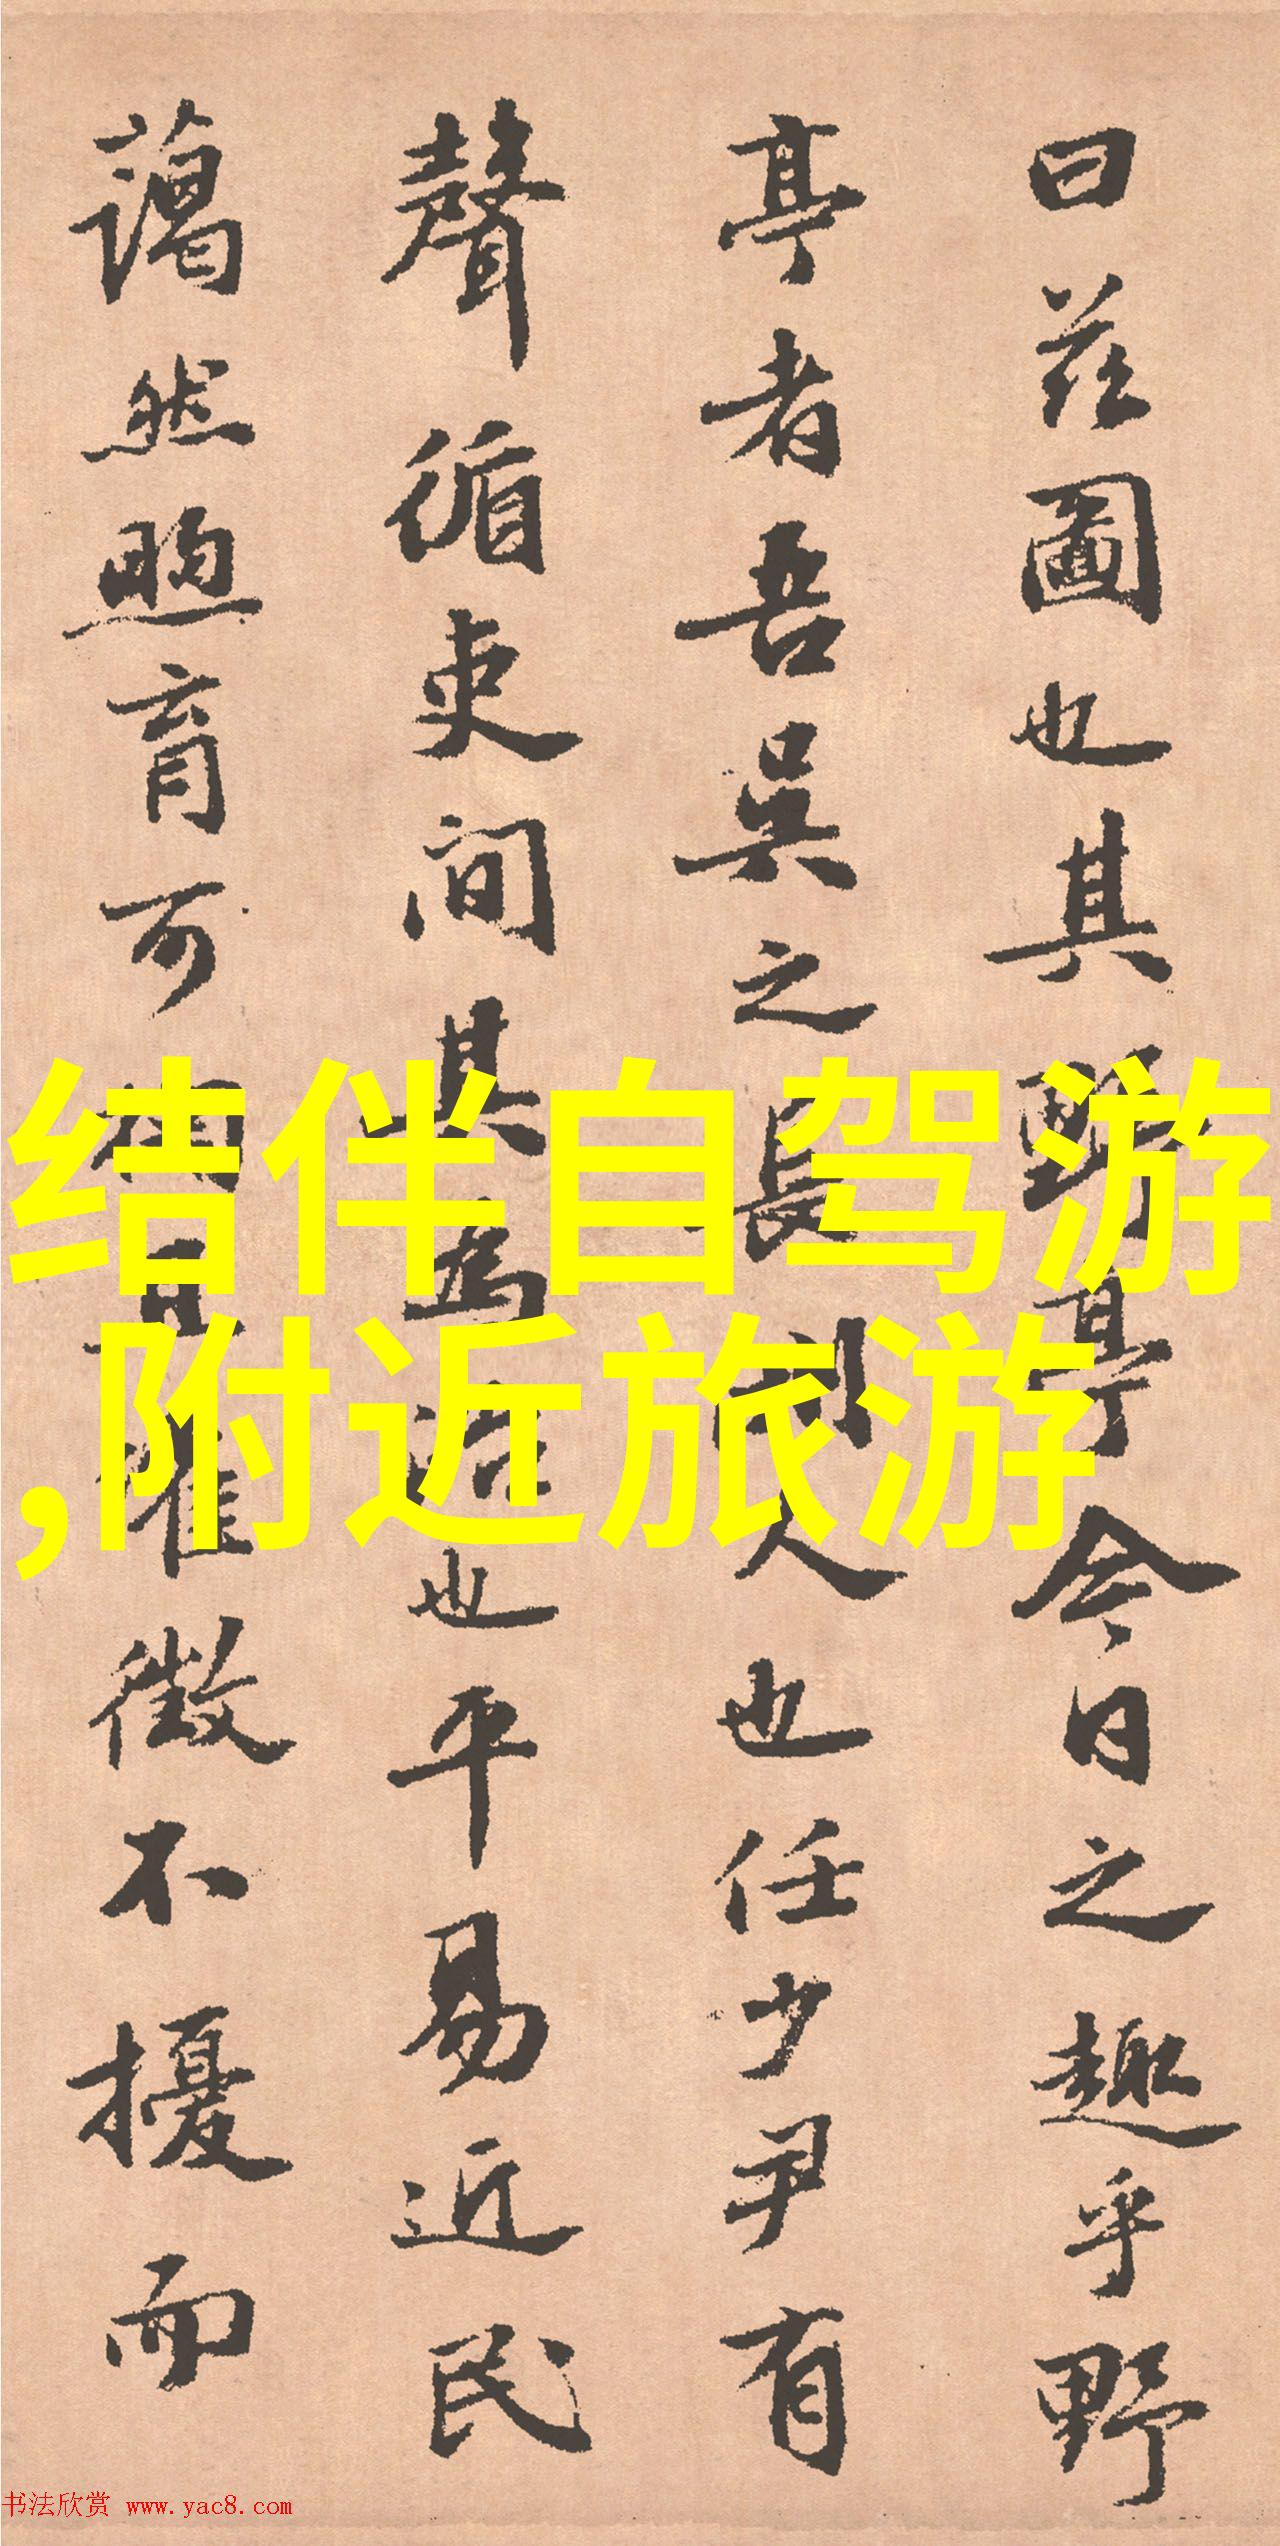 曰茲圖也其野亭今日之趣乎野
亭者吾吳之長洲人也任少尹有
聲循吏间其為治也平易近民
藹然煦育可
徵不擾而
结伴自驾游
,附近旅游
书法欣赏 www.yac8.com